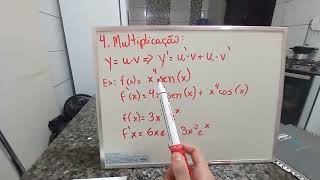 4. Multiplicação:
y = u·v ⇒ y' = u'·v + u·v'
Ex: f(x) = x⁴ sen(x)
f'(x) = 4 sen(x) + x⁴cos(x)
f(x) = 3x
f'x = 6xe 3x²eˣ